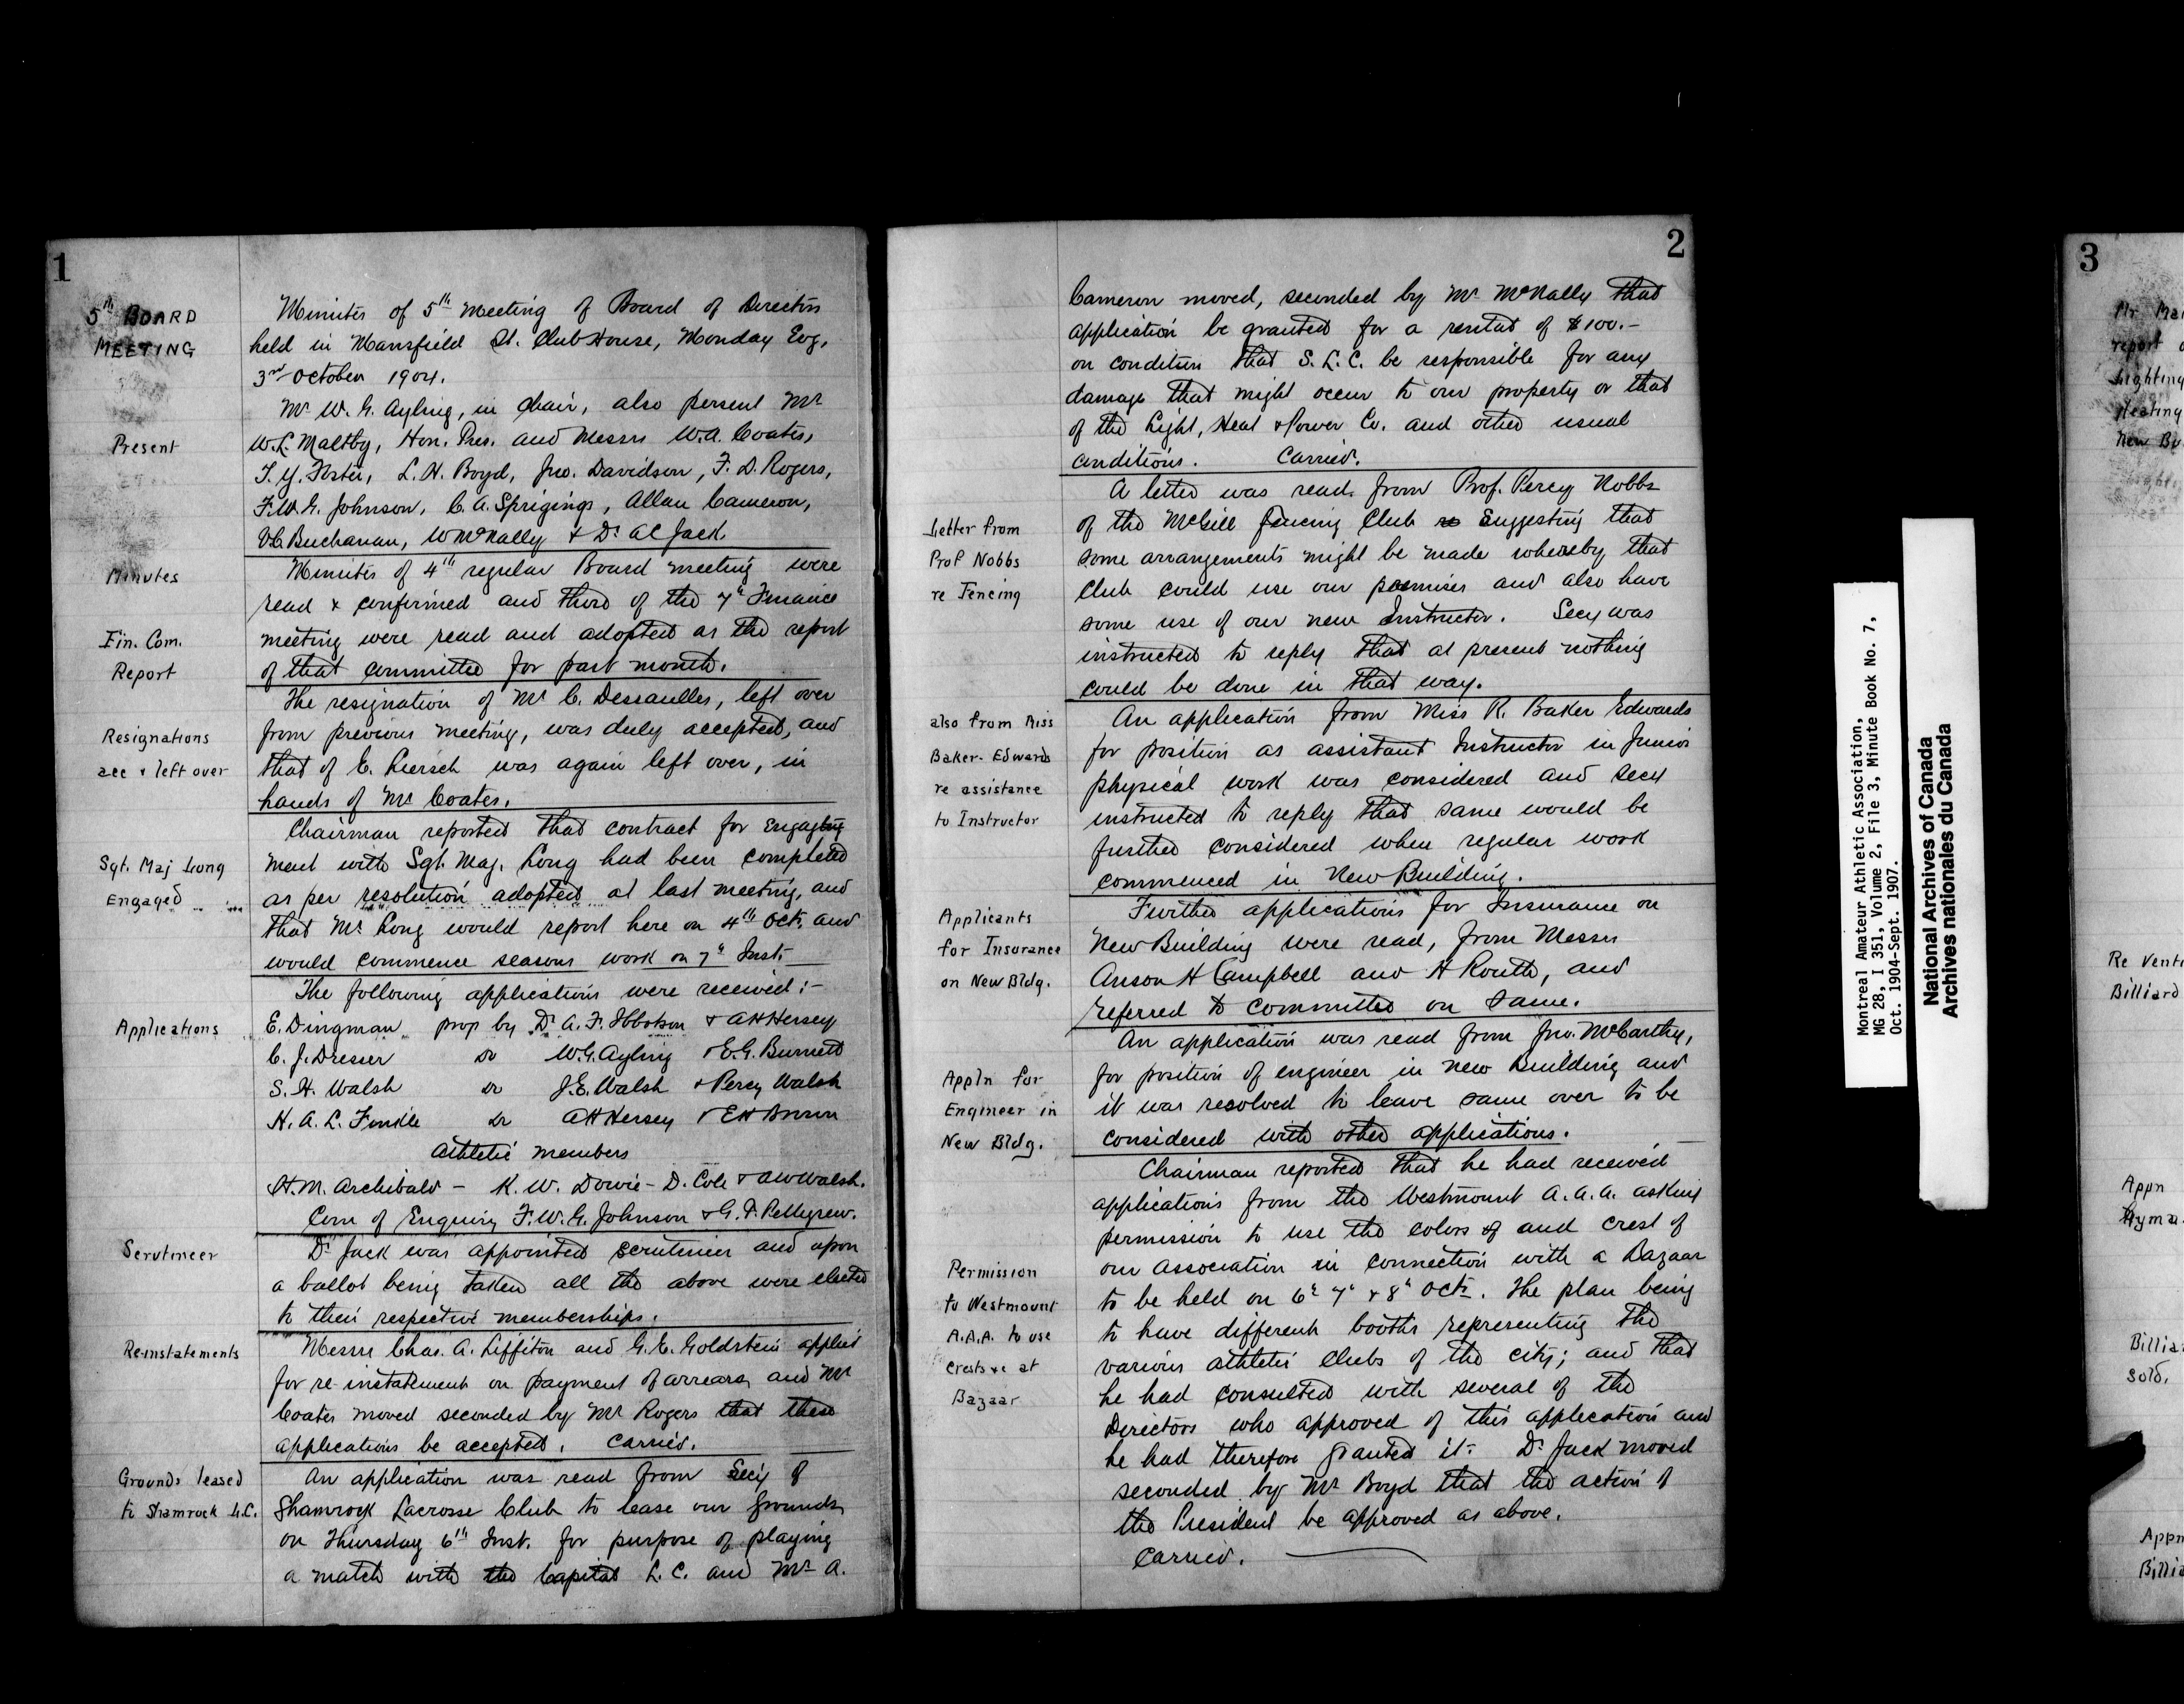 1
5th BOARD
MEETING
Minutes of 5th Meeting of Board of Directors
held in Mansfield St. Club House, Monday Evg,
3rd October 1904.
Present
Mr W. G. Ayling, in Chair, also present Mr
W. L. Maltby, Hon. Pres. and Messrs W. A. Coates,
T. Y. Foster, L. H. Boyd, Jno. Davidson, F. D. Rogers,
F. W. G. Johnson, C. A. Sprigings, Allan Cameron,
V C Buchanan, W McNally & Dr A C Jack.
Minutes
Minutes of 4th regular Board meeting were
read & confirmed and those of the 7th Finance
Fin. Com.
Report
meeting were read and adopted as the report
of that committee for past month.
Resignations
acc & left over
The resignation of Mr C. Dessaulles, left over
from previous meeting, was duly accepted, and
that of E. Liersch was again left over, in
hands of Mr Coates.
Sgt. Maj Long
Engaged
Chairman reported that contract for engage
ment with Sgt. Maj. Long had been completed
as per resolution adopted at last meeting, and
that Mr Long would report here on 4th Oct. and
would commence seasons work on 7th Inst.
Applications
The following applications were received:-
E. Dingman prop by Dr A. F. Ibbotson & A H Hersey
C. J. Dresser do W. G. Ayling & E. G. Burnett
S. H. Walsh do J. E. Walsh & Percy Walsh
H. A. L. Finkle do A H Hersey & E H Brown
Athletic members
H. M. Archibald - K. W. Dowie - D. Cole & A W Walsh.
Com of Enquiry F. W. G. Johnson & G. T. Pettigrew.
Scrutineer
Dr Jack was appointed scrutineer and upon
a ballot being taken all the above were elected
to their respective memberships.
Re-instatements
Messrs Chas. A. Liffiton and G. E. Goldstein applied
for re-instatement on payment of arrears, and Mr
Coates moved seconded by Mr Rogers that these
applications be accepted. Carried.
Grounds leased
to Shamrock L.C.
An application was read from Secy of
Shamrock Lacrosse Club to lease our grounds
on Thursday 6th Inst. for purpose of playing
a match with the Capital L. C. and Mr A.
2
Cameron moved, seconded by Mr McNally that
application be granted for a rental of $100.-
on condition that S. L. C. be responsible for any
damage that might occur to our property or that
of the Light, Heat & Power Co. and other usual
conditions. Carried.
Letter from
Prof Nobbs
re Fencing
A letter was read from Prof. Percy Nobbs
of the McGill Fencing Club re Suggesting that
some arrangements might be made whereby that
Club could use our premises and also have
some use of our new Instructor. Secy was
instructed to reply that at present nothing
could be done in that way.
also from Miss
Baker-Edwards
re assistance
to Instructor
An application from Miss R. Baker Edwards
for position as assistant Instructor in Junior
physical work was considered and Secy
instructed to reply that same would be
further considered when regular work
commenced in New Building.
Applicants
for Insurance
on New Bldg.
Further applications for Insurance on
New Building were read, from Messrs
Anson H Campbell and H Routh, and
referred to committee on same.
Appln for
Engineer in
New Bldg.
An application was read from Jno. McCarthy,
for position of engineer in new Building and
it was resolved to leave same over to be
considered with other applications.
Permission
to Westmount
A.A.A. to use
Crests &c at
Bazaar
Chairman reported that he had received
applications from the Westmount A.A.A. asking
permission to use the colors of and crest of
our Association in connection with a Bazaar
to be held on 6th 7th & 8th Oct. The plan being
to have different booths representing the
various athletic clubs of the city; and that
he had consulted with several of the
Directors who approved of this application and
he had therefore granted it. Dr Jack moved
seconded by Mr Boyd that the action of
the President be approved as above.
Carried.
Montreal Amateur Athletic Association,
MG 28, I 351, Volume 2, File 3, Minute Book No. 7,
Oct. 1904-Sept. 1907.
National Archives of Canada
Archives nationales du Canada
3
report
Lighting
Heating
New
Re
Billiard
Appn
sold.
Appn